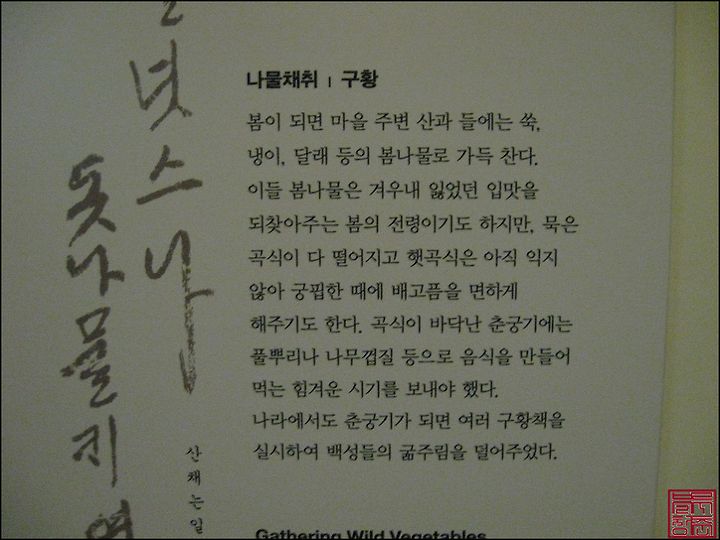 넛스나
돗나물키
산채는일
나물채취 | 구황
봄이 되면 마을 주변 산과 들에는 쑥,
냉이, 달래 등의 봄나물로 가득 찬다.
이들 봄나물은 겨우내 잃었던 입맛을
되찾아주는 봄의 전령이기도 하지만, 묵은
곡식이 다 떨어지고 햇곡식은 아직 익지
않아 궁핍한 때에 배고픔을 면하게
해주기도 한다. 곡식이 바닥난 춘궁기에는
풀뿌리나 나무껍질 등으로 음식을 만들어
먹는 힘겨운 시기를 보내야 했다.
나라에서도 춘궁기가 되면 여러 구황책을
실시하여 백성들의 굶주림을 덜어주었다.
Gathering Wild Vegetables